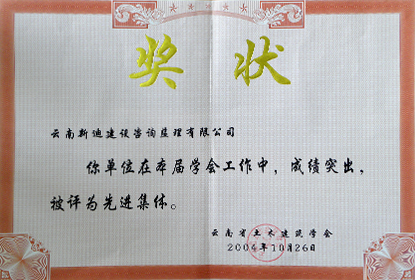 奖 状
云南新迪建设咨询监理有限公司
你单位在本届学会工作中，成绩突出，
被评为先进集体。
云南省土木建筑学会
2004年10月26日